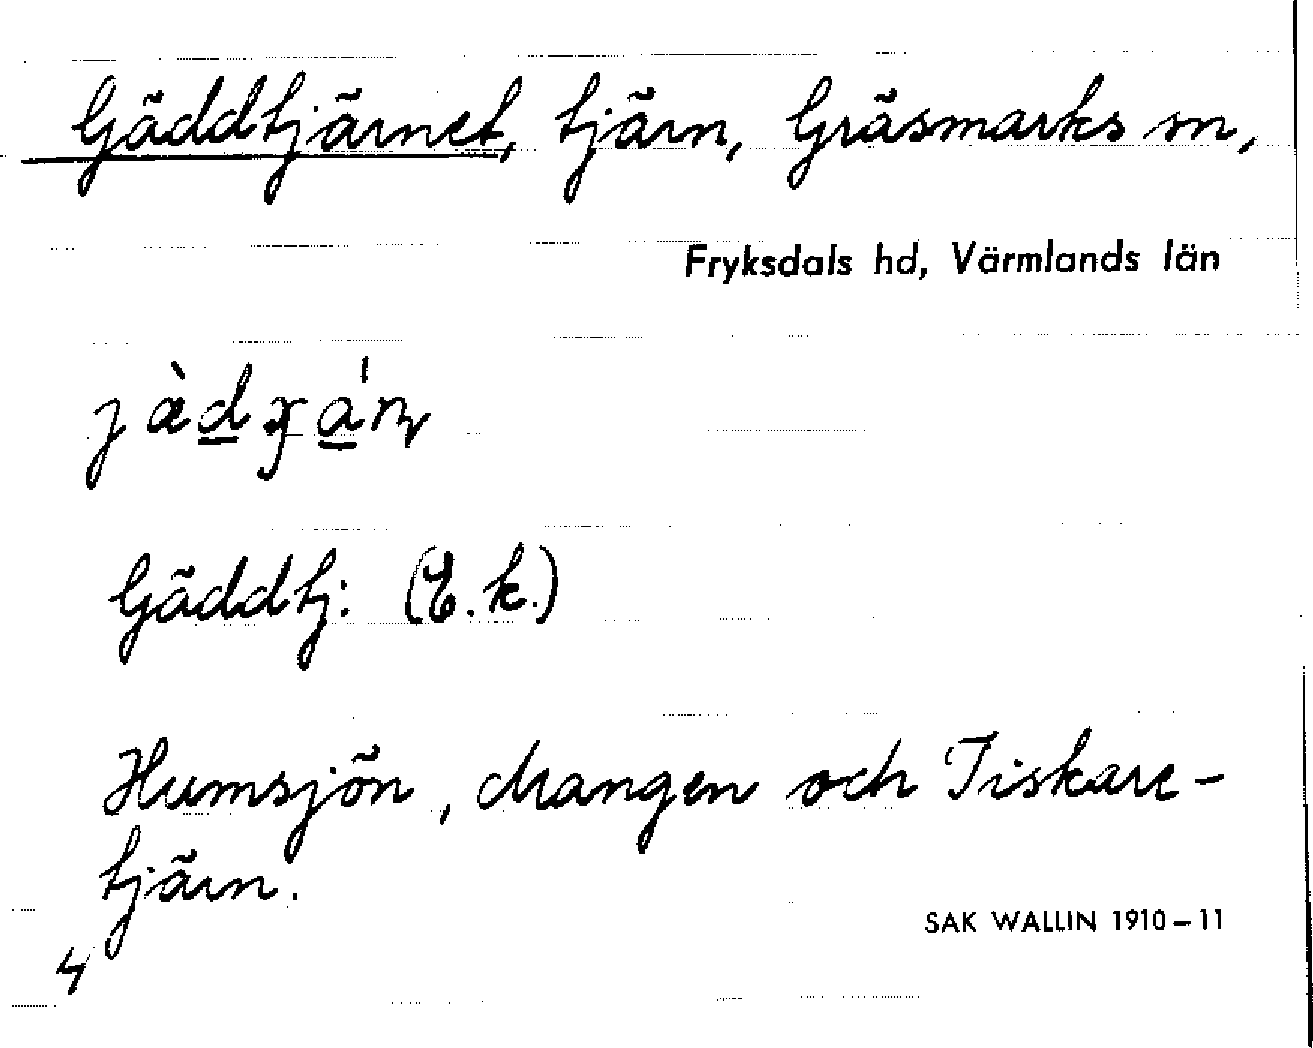 Gäddtjärnet, tjärn, Gräsmarks sn,
Fryksdals hd, Värmlands län
Gäddtj: (E.k.)
Humsjön, drangen och Tiskare-
tjärn.
SAK WALLIN 1910–11
4